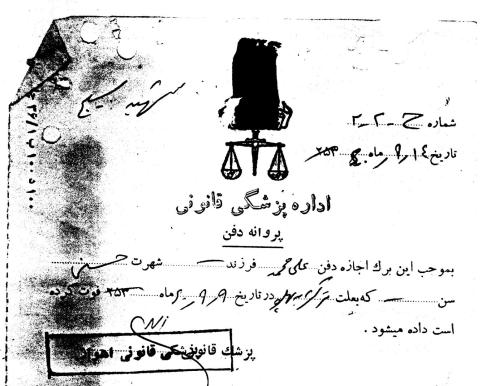 شهید
شماره ح-۲-۲
تاریخ ۱۴ ر۹ ماه ۲۵۳
اداره پزشگی قانونی
پروانه دفن
بموجب این برك اجازه دفن علی‌محمد فرزند — شهرت حسنی
سن — که بعلت در تاریخ ۹ ر۹ ماه ۲۵۳ فوت کرده
است داده میشود .
پزشك قانونی
پزشکی قانونی اهواز